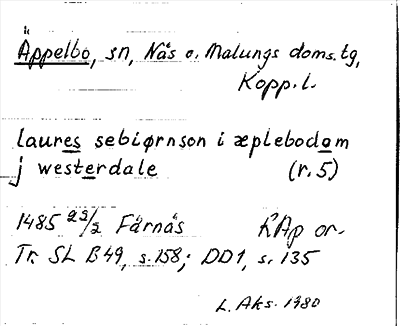 Äppelbo, sn, Nås o. Malungs doms. tg,
Kopp. l.
laures sebiørnson i æplebodom
j westerdale (r. 5)
1485 22/2 Färnäs RAp or.
Tr. SL B49, s. 158; DD1, s. 135
L. Aks. 1980